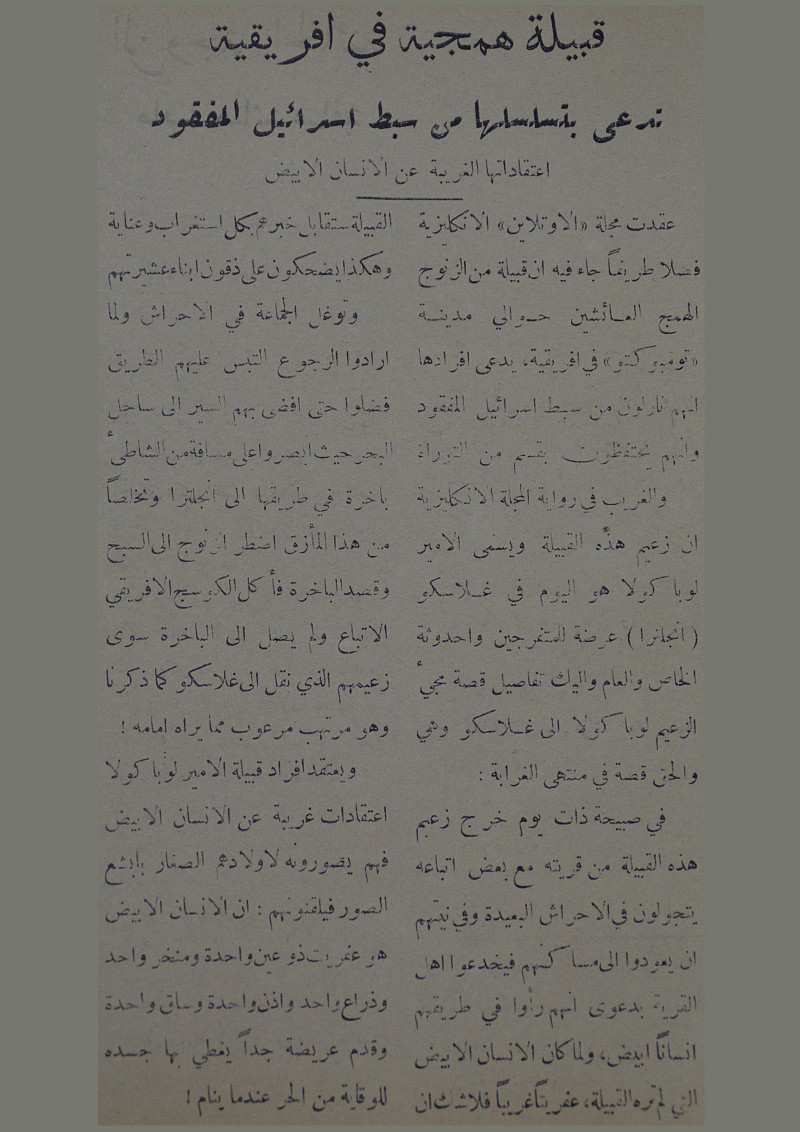 قبيلة همجية في افريقية
تدعى بتسلسلها من سبط اسرائيل المفقود
اعتقاداتها الغريبة عن الانسان الابيض
عقدت مجلة «الاوتلاين» الانكليزية
فصلا طريفاً جاء فيه ان قبيلة من الزنوج
الهمج العائشين حوالي مدينة
«تومبوكتو» في افريقية، يدعى افرادها
انهم نازلون من سبط اسرائيل المفقود
وانهم يحتفظون بقسم من التوراة
والغريب في رواية المجلة الانكليزية
ان زعيم هذه القبيلة ويسمى الامير
لوبا كولا هو اليوم في غلاسكو
(انجلترا) عرضة للمتفرجين واحدوثة
الخاص والعام واليك تفاصيل قصة مجيء
الزعيم لوبا كولا الى غلاسكو وهي
والحق قصة في منتهى الغرابة :
في صبيحة ذات يوم خرج زعيم
هذه القبيلة من قريته مع بعض اتباعه
يتجولون في الاحراش البعيدة وفي نيتهم
ان يعودوا الى مساكنهم فيخدعوا اهل
القرية بدعوى انهم رأوا في طريقهم
انساناً ابيض، ولما كان الانسان الابيض
الذي لم تره القبيلة، عفريتاً غريباً فلا شك ان
القبيلة ستقابل خبرهم بكل استغراب وعناية
وهكذا يضحكون على ذقون ابناء عشيرتهم
وتوغل الجماعة في الاحراش ولما
ارادوا الرجوع التبس عليهم الطريق
فضلوا حتى افضى بهم السير الى ساحل
البحر حيث ابصروا على مسافة من الشاطئ
باخرة في طريقها الى انجلترا وتخلصاً
من هذا المأزق اضطر الزنوج الى السبح
وقصد الباخرة فأكل الكوسج الافريقي
الاتباع ولم يصل الى الباخرة سوى
زعيمهم الذي نقل الى غلاسكو كما ذكرنا
وهو مرتهب مرعوب مما يراه امامه !
ويعتقد افراد قبيلة الامير لوبا كولا
اعتقادات غريبة عن الانسان الابيض
فهم يصورونه لاولادهم الصغار بابشع
الصور فيلقنونهم : ان الانسان الابيض
هو عفريت ذو عين واحدة ومنخر واحد
وذراع واحد واذن واحدة وساق واحدة
وقدم عريضة جداً يغطي بها جسده
للوقاية من الحر عندما ينام !